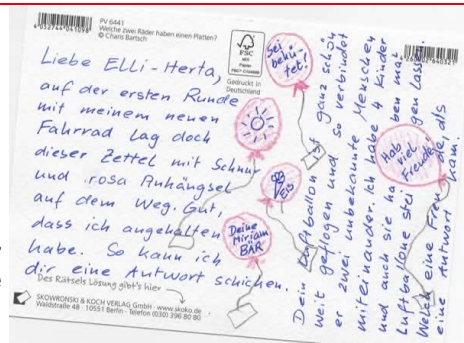 4032744041098
PV 6441
Welche zwei Räder haben einen Platten?
© Charis Bartsch
FSC
MIX
Papier
Gedruckt in
Deutschland
Liebe Elli-Herta,
auf der ersten Runde
mit meinem neuen
Fahrrad lag doch
dieser Zettel mit Schnur
und rosa Anhängsel
auf dem Weg. Gut,
dass ich angehalten
habe. So kann ich
dir eine Antwort schicken.
Sei
behü-
tet!
EIS
Deine
Mirjam
BÄR
Hab
viel
Freude!
Dein Luftballon ist ganz schön
weit geflogen und so verbindet
er zwei unbekannte Menschen
miteinander. Ich habe 4 Kinder
und auch sie haben mal
Luftballone steigen lassen.
Welch eine Freude als
eine Antwort kam.
Des Rätsels Lösung gibt's hier
SKOWRONSKI & KOCH VERLAG GmbH · www.skoko.de
Waldstraße 48 · 10551 Berlin · Telefon (030) 396 80 80